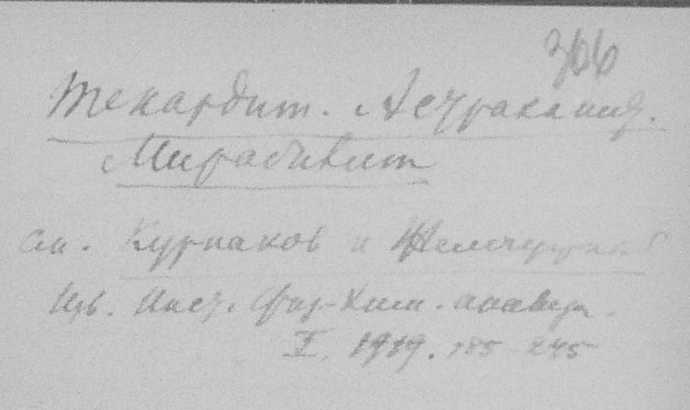 306
Тенардит. Астраханит.
Мирабилит
см. Курнаков и Жемчужный
Изв. Инст. физ-хим. анализа.
I. 1919. 185-245